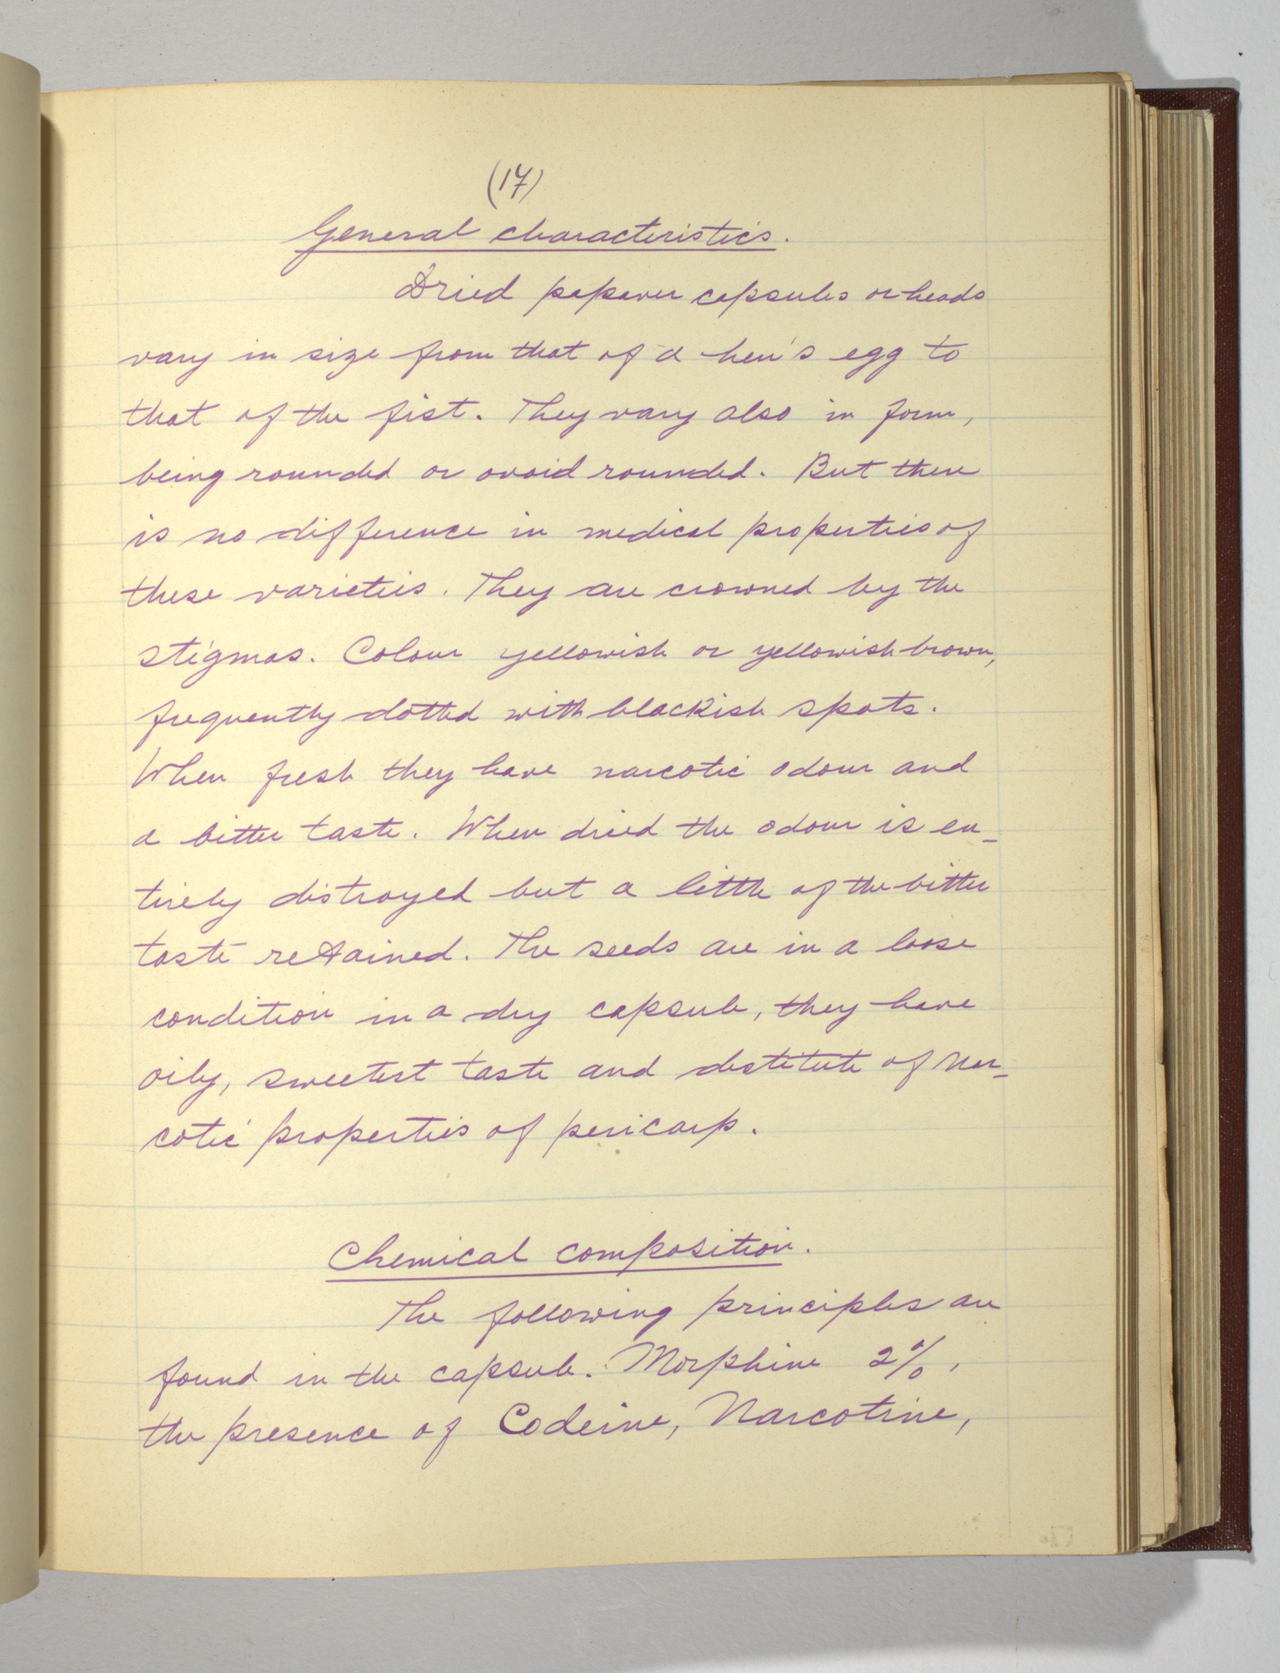 (17)
General characteristics.
Dried papaver capsules or heads
vary in size from that of a hen's egg to
that of the fist. They vary also in form,
being rounded or ovoid rounded. But there
is no difference in medical properties of
these varieties. They are crowned by the
stigmas. Colour yellowish or yellowish-brown,
frequently dotted with blackish spots.
When fresh they have narcotic odour and
a bitter taste. When dried the odour is en-
tirely distroyed but a little of the bitter
taste retained. The seeds are in a loose
condition in a dry capsule, they have
oily, sweetest taste and destitute of nar-
cotic properties of pericarp.
Chemical composition.
The following principles are
found in the capsule. Morphine 2%,
the presence of Codeine, Narcotine,